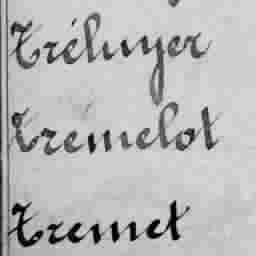 Tréluyer
Tremelot
Tremet